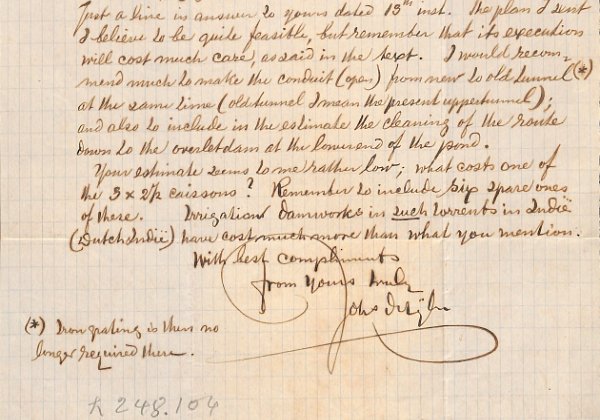 Just a line in answer to yours dated 13th inst. The plan I sent
I believe to be quite feasible, but remember that its execution
will cost much care, as said in the text. I would recom-
mend much to make the conduit (open) from new to old tunnel (*)
at the same time (old tunnel I mean the present upper tunnel);
and also to include in the estimate the cleaning of the route
down to the overlet dam at the lower end of the pond.
Your estimate seems to me rather low; what costs one of
the 3 x 2½ caissons? Remember to include six spare ones
of these. Irrigation damworks in such torrents in Indië
(Dutch Indië) have cost much more than what you mention.
With best compliments
from Yours truly
Johs de Rijke
(*) Iron grating is then no
longer required there.
248.104